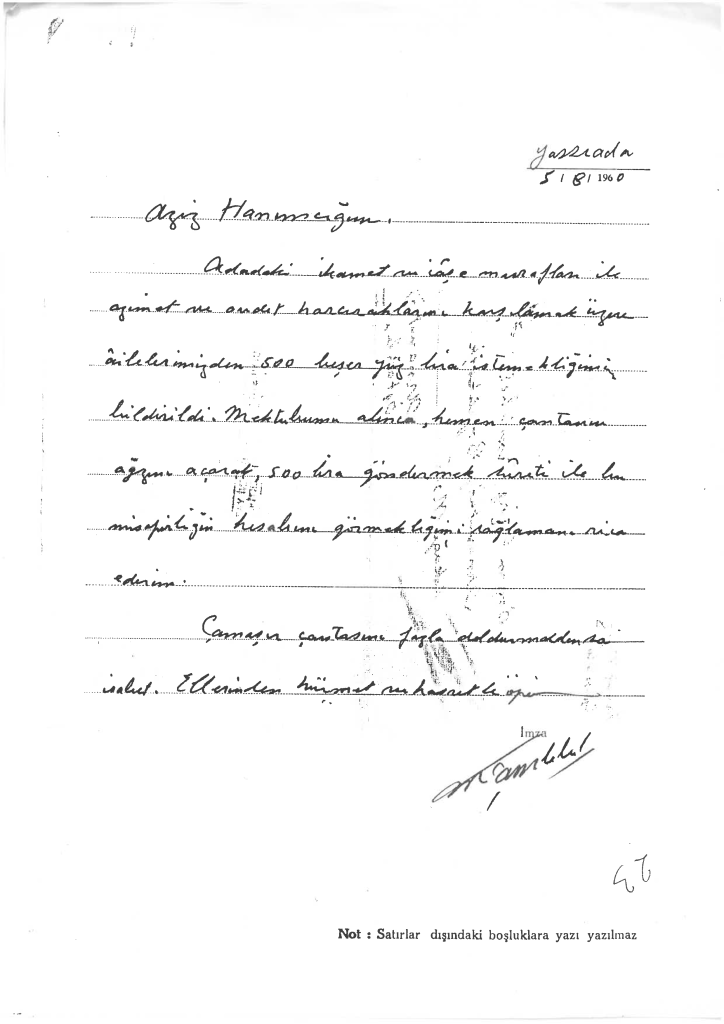 Yassıada
5/8/1960
Aziz Hanımcığım.
Adadaki ikamet ve iâşe masrafları ile
azimet ve avdet harcırahlarını karşılamak üzere
âilelerimizden 500 beşer yüz lira istemekliğimiz
bildirildi. Mektubumu alınca, hemen çantanın
ağzını açarak, 500 lira göndermek sûreti ile bu
misafirliğin hesabını görmekliğimi sağlamanı rica
ederim.
Çamaşır çantasını fazla doldurmaddınsa
isabet. Ellerinden hürmet ve hasretle öperim
İmza
23
Not : Satırlar dışındaki boşluklara yazı yazılmaz